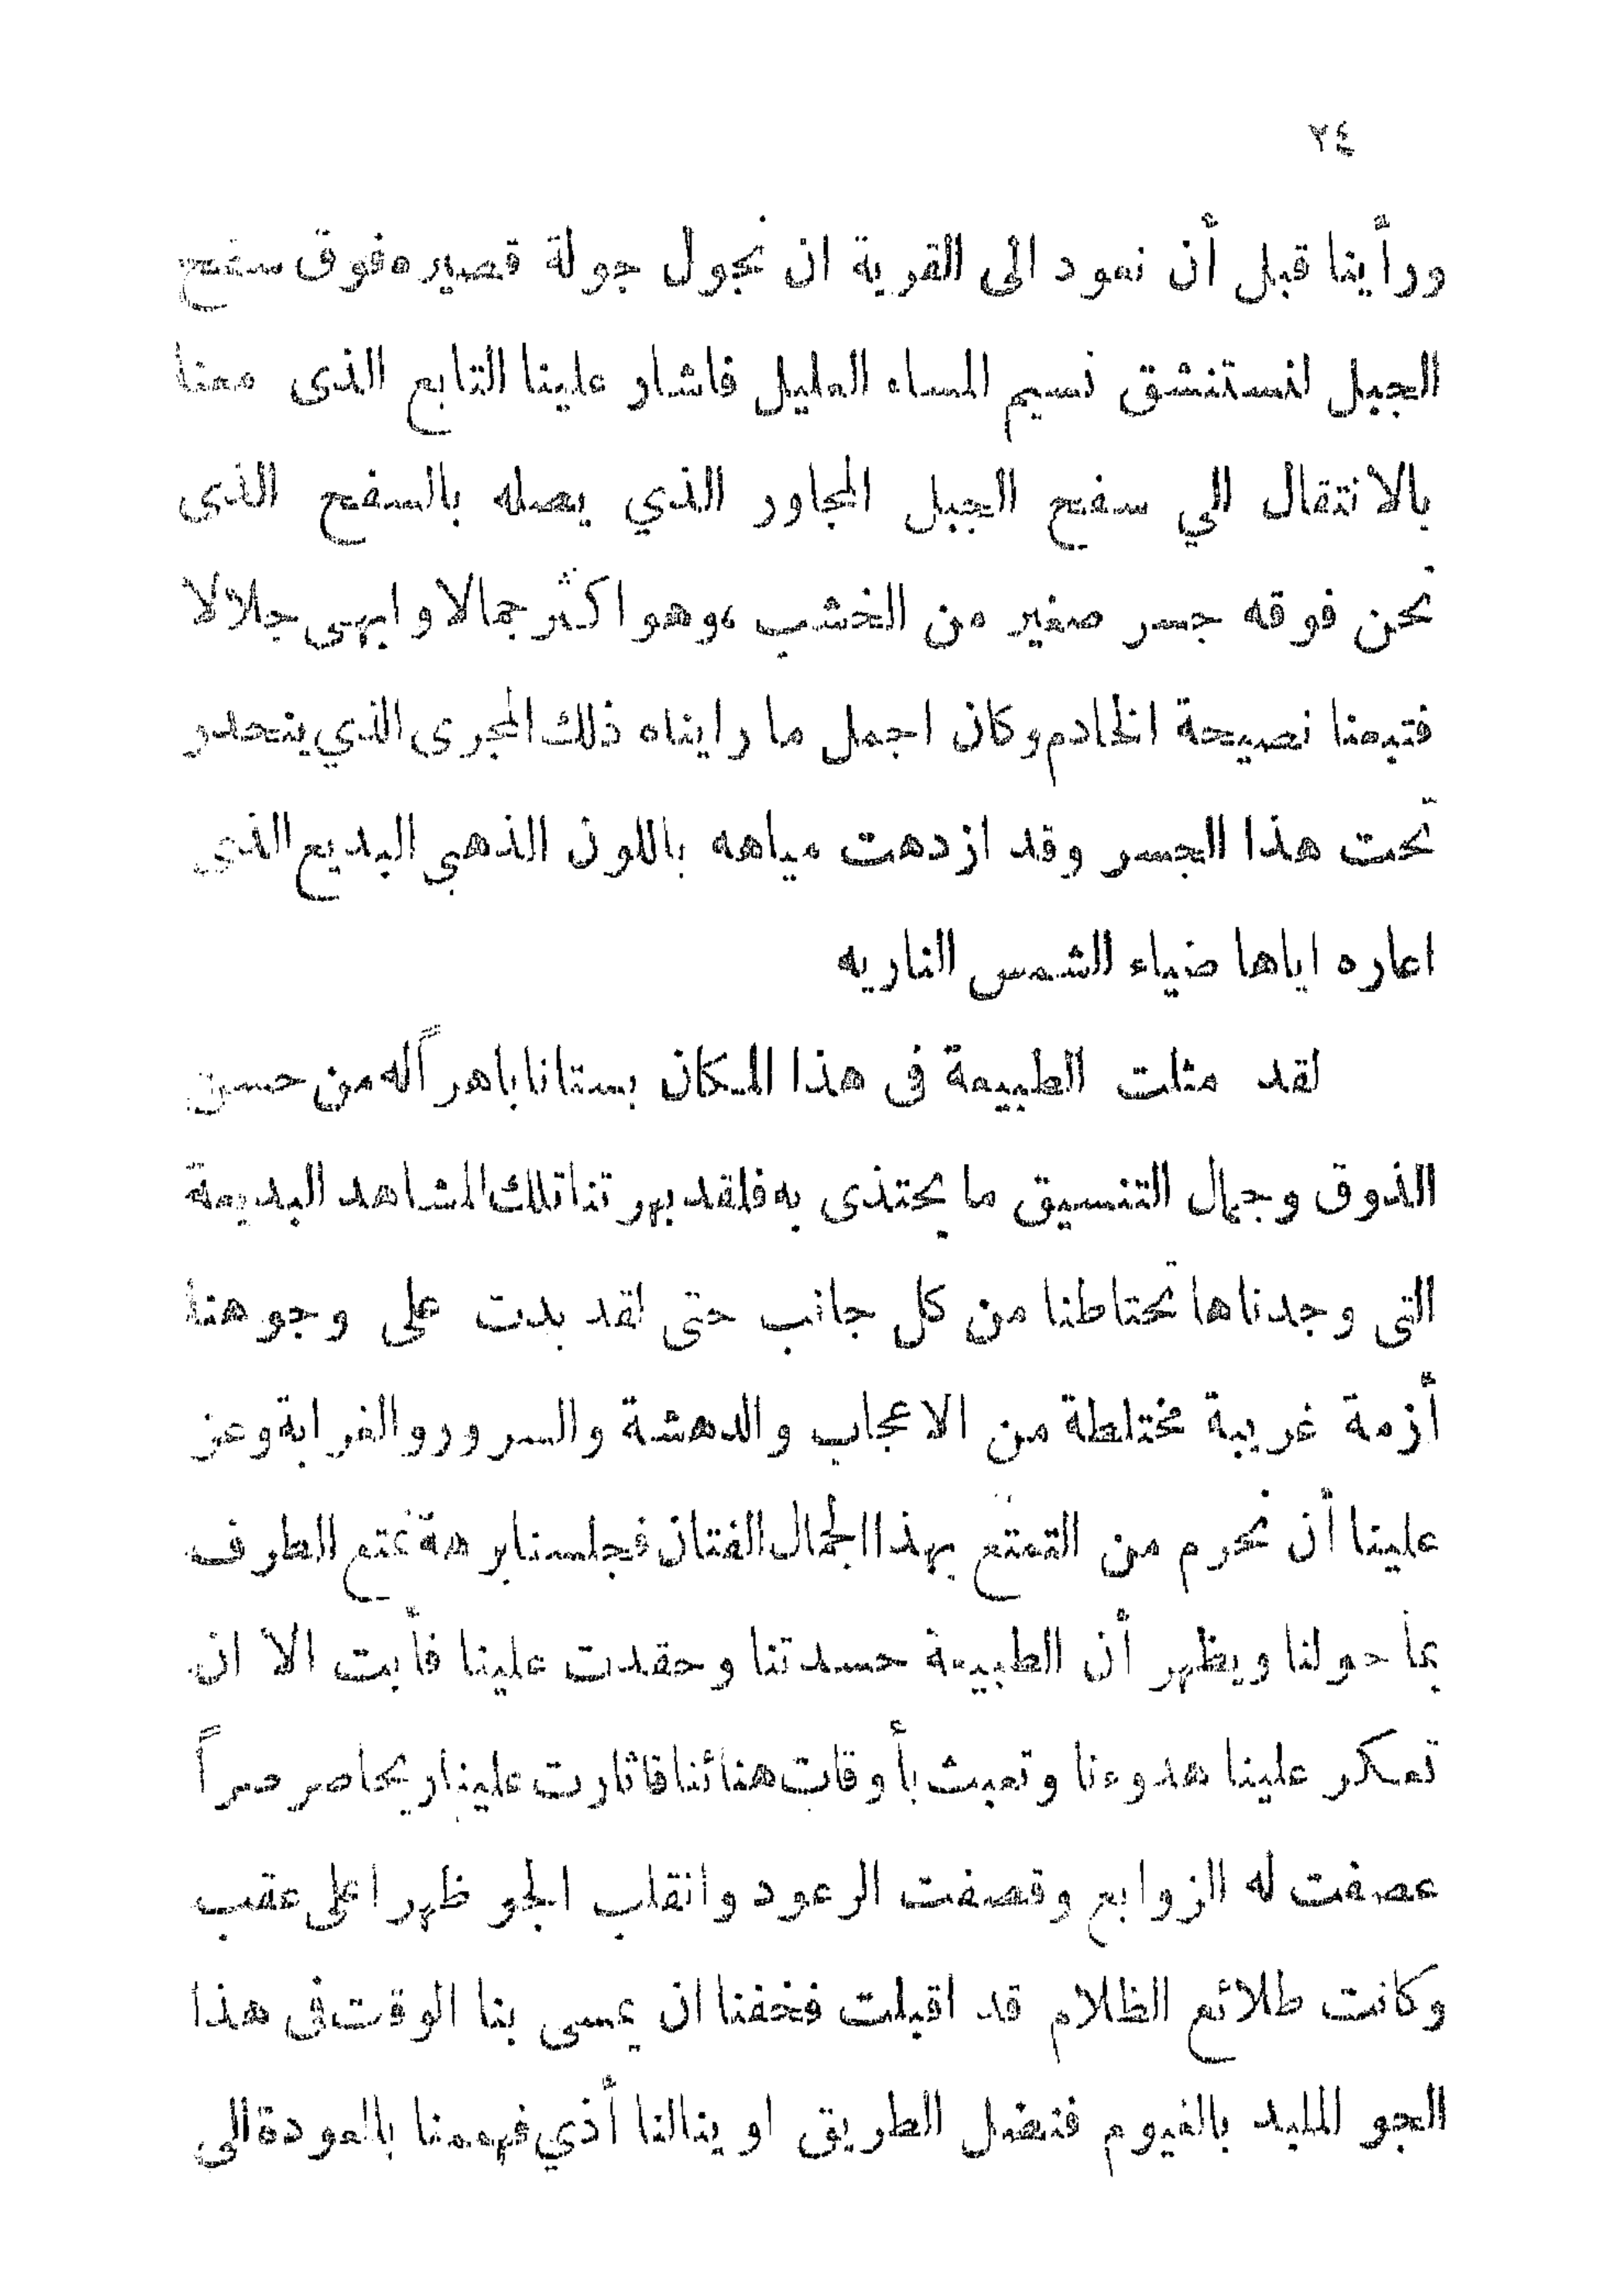 ٢٤
ورأينا قبل أن نعود الى القرية ان نجول جولة قصيره فوق سفح
الجبل لنستنشق نسيم المساء العليل فاشار علينا التابع الذى معنا
بالانتقال الي سفح الجبل المجاور الذي يصله بالسفح الذى
نحن فوقه جسر صغير من الخشب ، وهو اكثر جمالا وابهى جلالا
فتبعنا نصيحة الخادم وكان اجمل ما رايناه ذلك المجرى الذي ينحدر
تحت هذا الجسر وقد ازدهت مياهه باللون الذهبي البديع الذى
اعاره اياها ضياء الشمس الناريه
لقد مثلت الطبيعة فى هذا المكان بستانا باهراً له من حسن
الذوق وجمال التنسيق ما يحتذى به فلقد بهرتنا تلك المشاهد البديعة
التى وجدناها تحتاطنا من كل جانب حتى لقد بدت على وجوهنا
أزمة غريبة مختلطة من الاعجاب والدهشة والسرور والغرابة وعز
علينا أن نحرم من التمتع بهذا الجمال الفتان فجلسنا برهة نمتع الطرف
بما حولنا ويظهر أن الطبيعة حسدتنا وحقدت علينا فأبت الا ان
تعكر علينا هدوءنا وتعبث بأوقات هنائنا فاثارت علينا ريحا صر صراً
عصفت له الزوابع وقصفت الرعود وانقلب الجو ظهرا على عقب
وكانت طلائع الظلام قد اقبلت فخفنا ان يمسى بنا الوقت فى هذا
الجو الملبد بالغيوم فنضل الطريق او ينالنا أذي فهممنا بالعودة الى